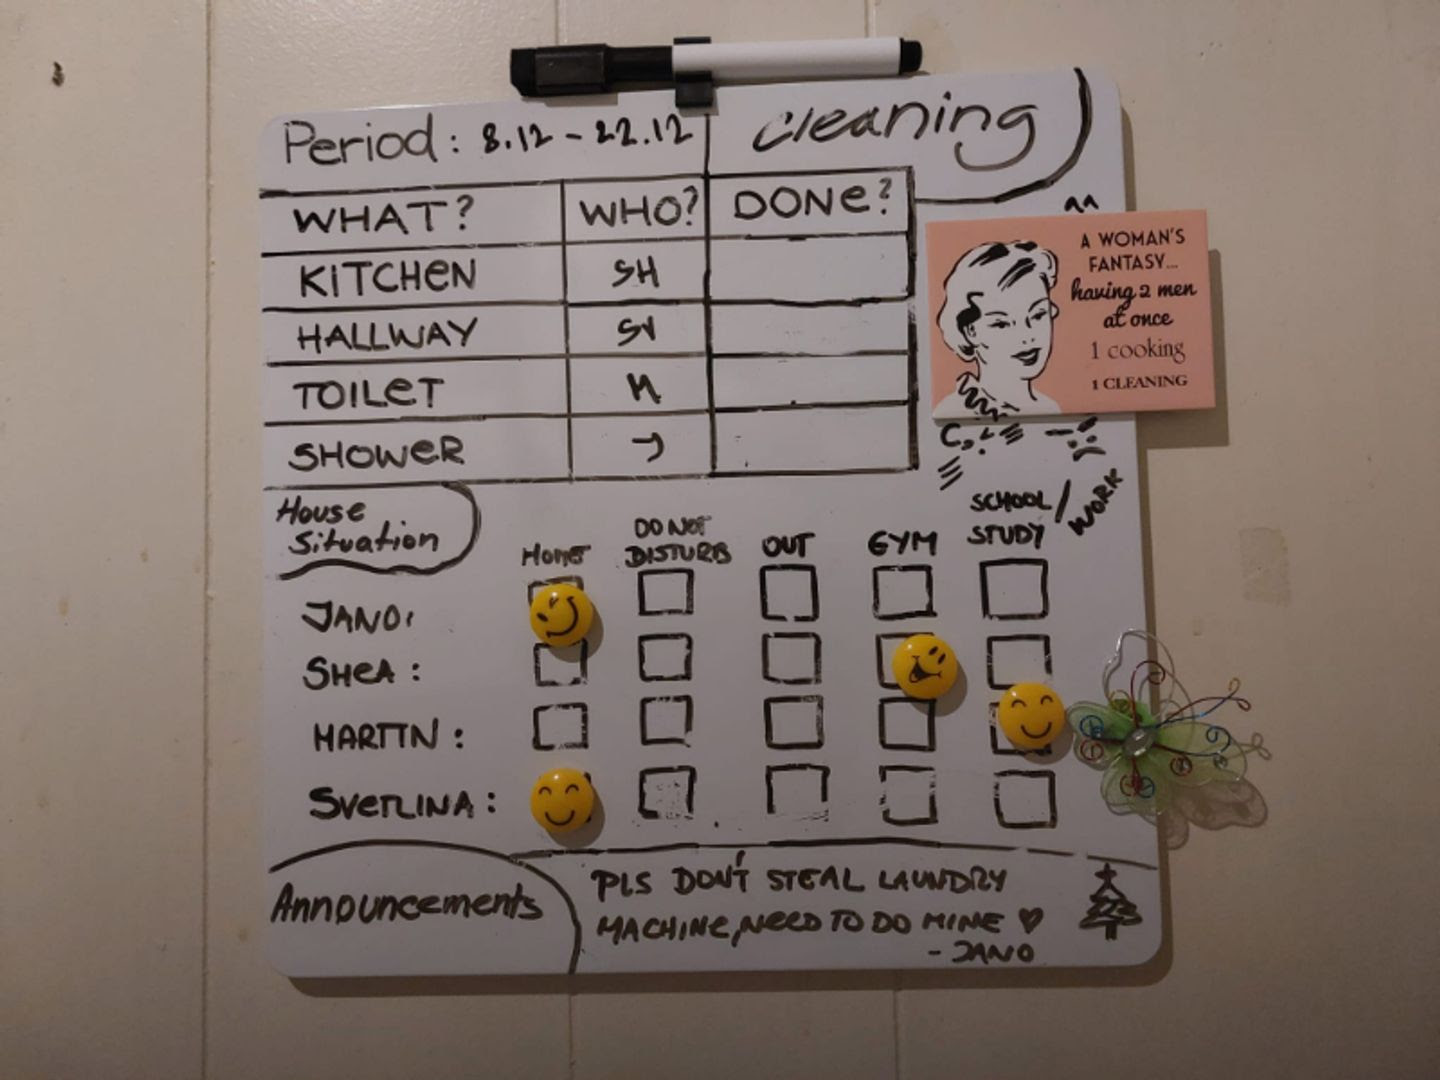 Period: 8.12 - 22.12
Cleaning
WHAT? WHO? DONE?
KITCHEN SH
HALLWAY SV
TOILET M
SHOWER J
A WOMAN'S
FANTASY...
having 2 men
at once
1 cooking
1 CLEANING
House
Situation
HOME DO NOT DISTURB OUT GYM SCHOOL/WORK STUDY
JANO:
SHEA:
MARTIN:
SVETLINA:
Announcements
PLS DON'T STEAL LAUNDRY
MACHINE, NEED TO DO MINE ♡
- JANO